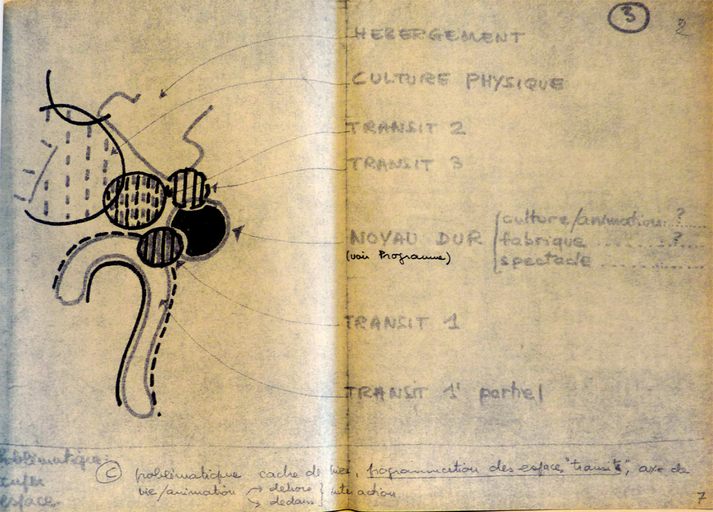 3
2
HEBERGEMENT
CULTURE PHYSIQUE
TRANSIT 2
TRANSIT 3
NOYAU DUR
(voir Programme)
culture/animation ?
fabrique ?
spectacle
TRANSIT 1
TRANSIT 1' partiel
problématique
espace
C problématique cadre de vie, programmation des espaces "transits", axe de
vie/animation → dehors
→ dedans } interaction
7